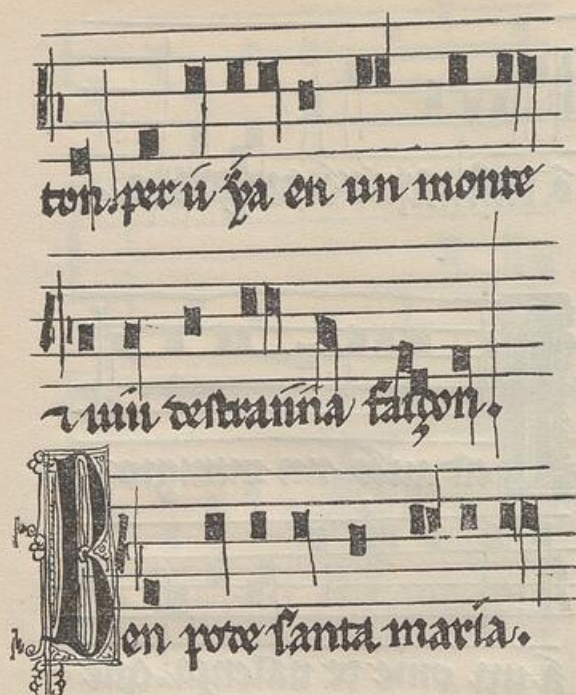 ton. per u ya en un monte
⁊ uiu destranna façon.
Ben pode santa maria.